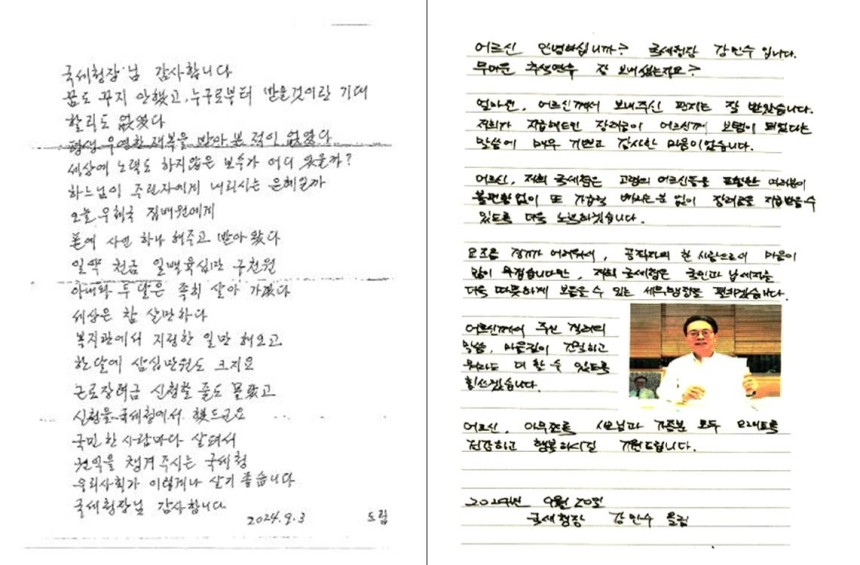 국세청장님 감사합니다
꿈도 꾸지 안했고, 누구로부터 받을것이란 기대
할리도 없었다
평생 우연한 재복을 받아 본 적이 없었다
세상에 노력도 하지않은 보수가 어디 있을까?
하느님이 주린자에게 내리시는 은혜일까
오늘 우체국 집배원에게
폰에 사인 하나 해주고 받아 왔다
일약 천금 일백육십만 구천원
아내와 두 달은 족히 살아 가겠다
세상은 참 살만하다
복지관에서 지정한 일만 해오고
한달에 삼십만원도 크지요
근로장려금 신청할 줄도 몰랐고
신청을 국세청에서 했드군요
국민 한 사람마다 살펴서
권익을 챙겨 주시는 국세청
우리사회가 이렇게나 살기 좋습니다
국세청장님 감사합니다
2024.9.3 드림
어르신 안녕하십니까? 국세청장 강민수 입니다.
무더운 추석연휴 잘 보내셨는지요?
얼마전, 어르신께서 보내주신 편지는 잘 받았습니다.
저희가 지급해드린 장려금이 어르신께 보탬이 되었다는
말씀에 매우 기쁘고 감사한 마음이었습니다.
어르신, 저희 국세청은 고령의 어르신들을 포함한 여러분이
불편함없이 또 가급적 빠지는 분 없이 장려금을 지급받을 수
있도록 더욱 노력하겠습니다.
요즈음 경기가 어려워서, 공직자의 한 사람으로서 마음이
많이 무겁습니다만, 저희 국세청은 국민과 납세자를
더욱 따뜻하게 보듬을 수 있는 세무행정을 펼치겠습니다.
어르신께서 주신 격려의
말씀, 마음깊이 간직하고
뭐라도 더 할 수 있도록
힘쓰겠습니다.
어르신, 아무쪼록 사모님과 가족분 모두 오래도록
건강하고 행복하시길 기원드립니다.
2024년 9월 20일
국세청장 강민수 올림